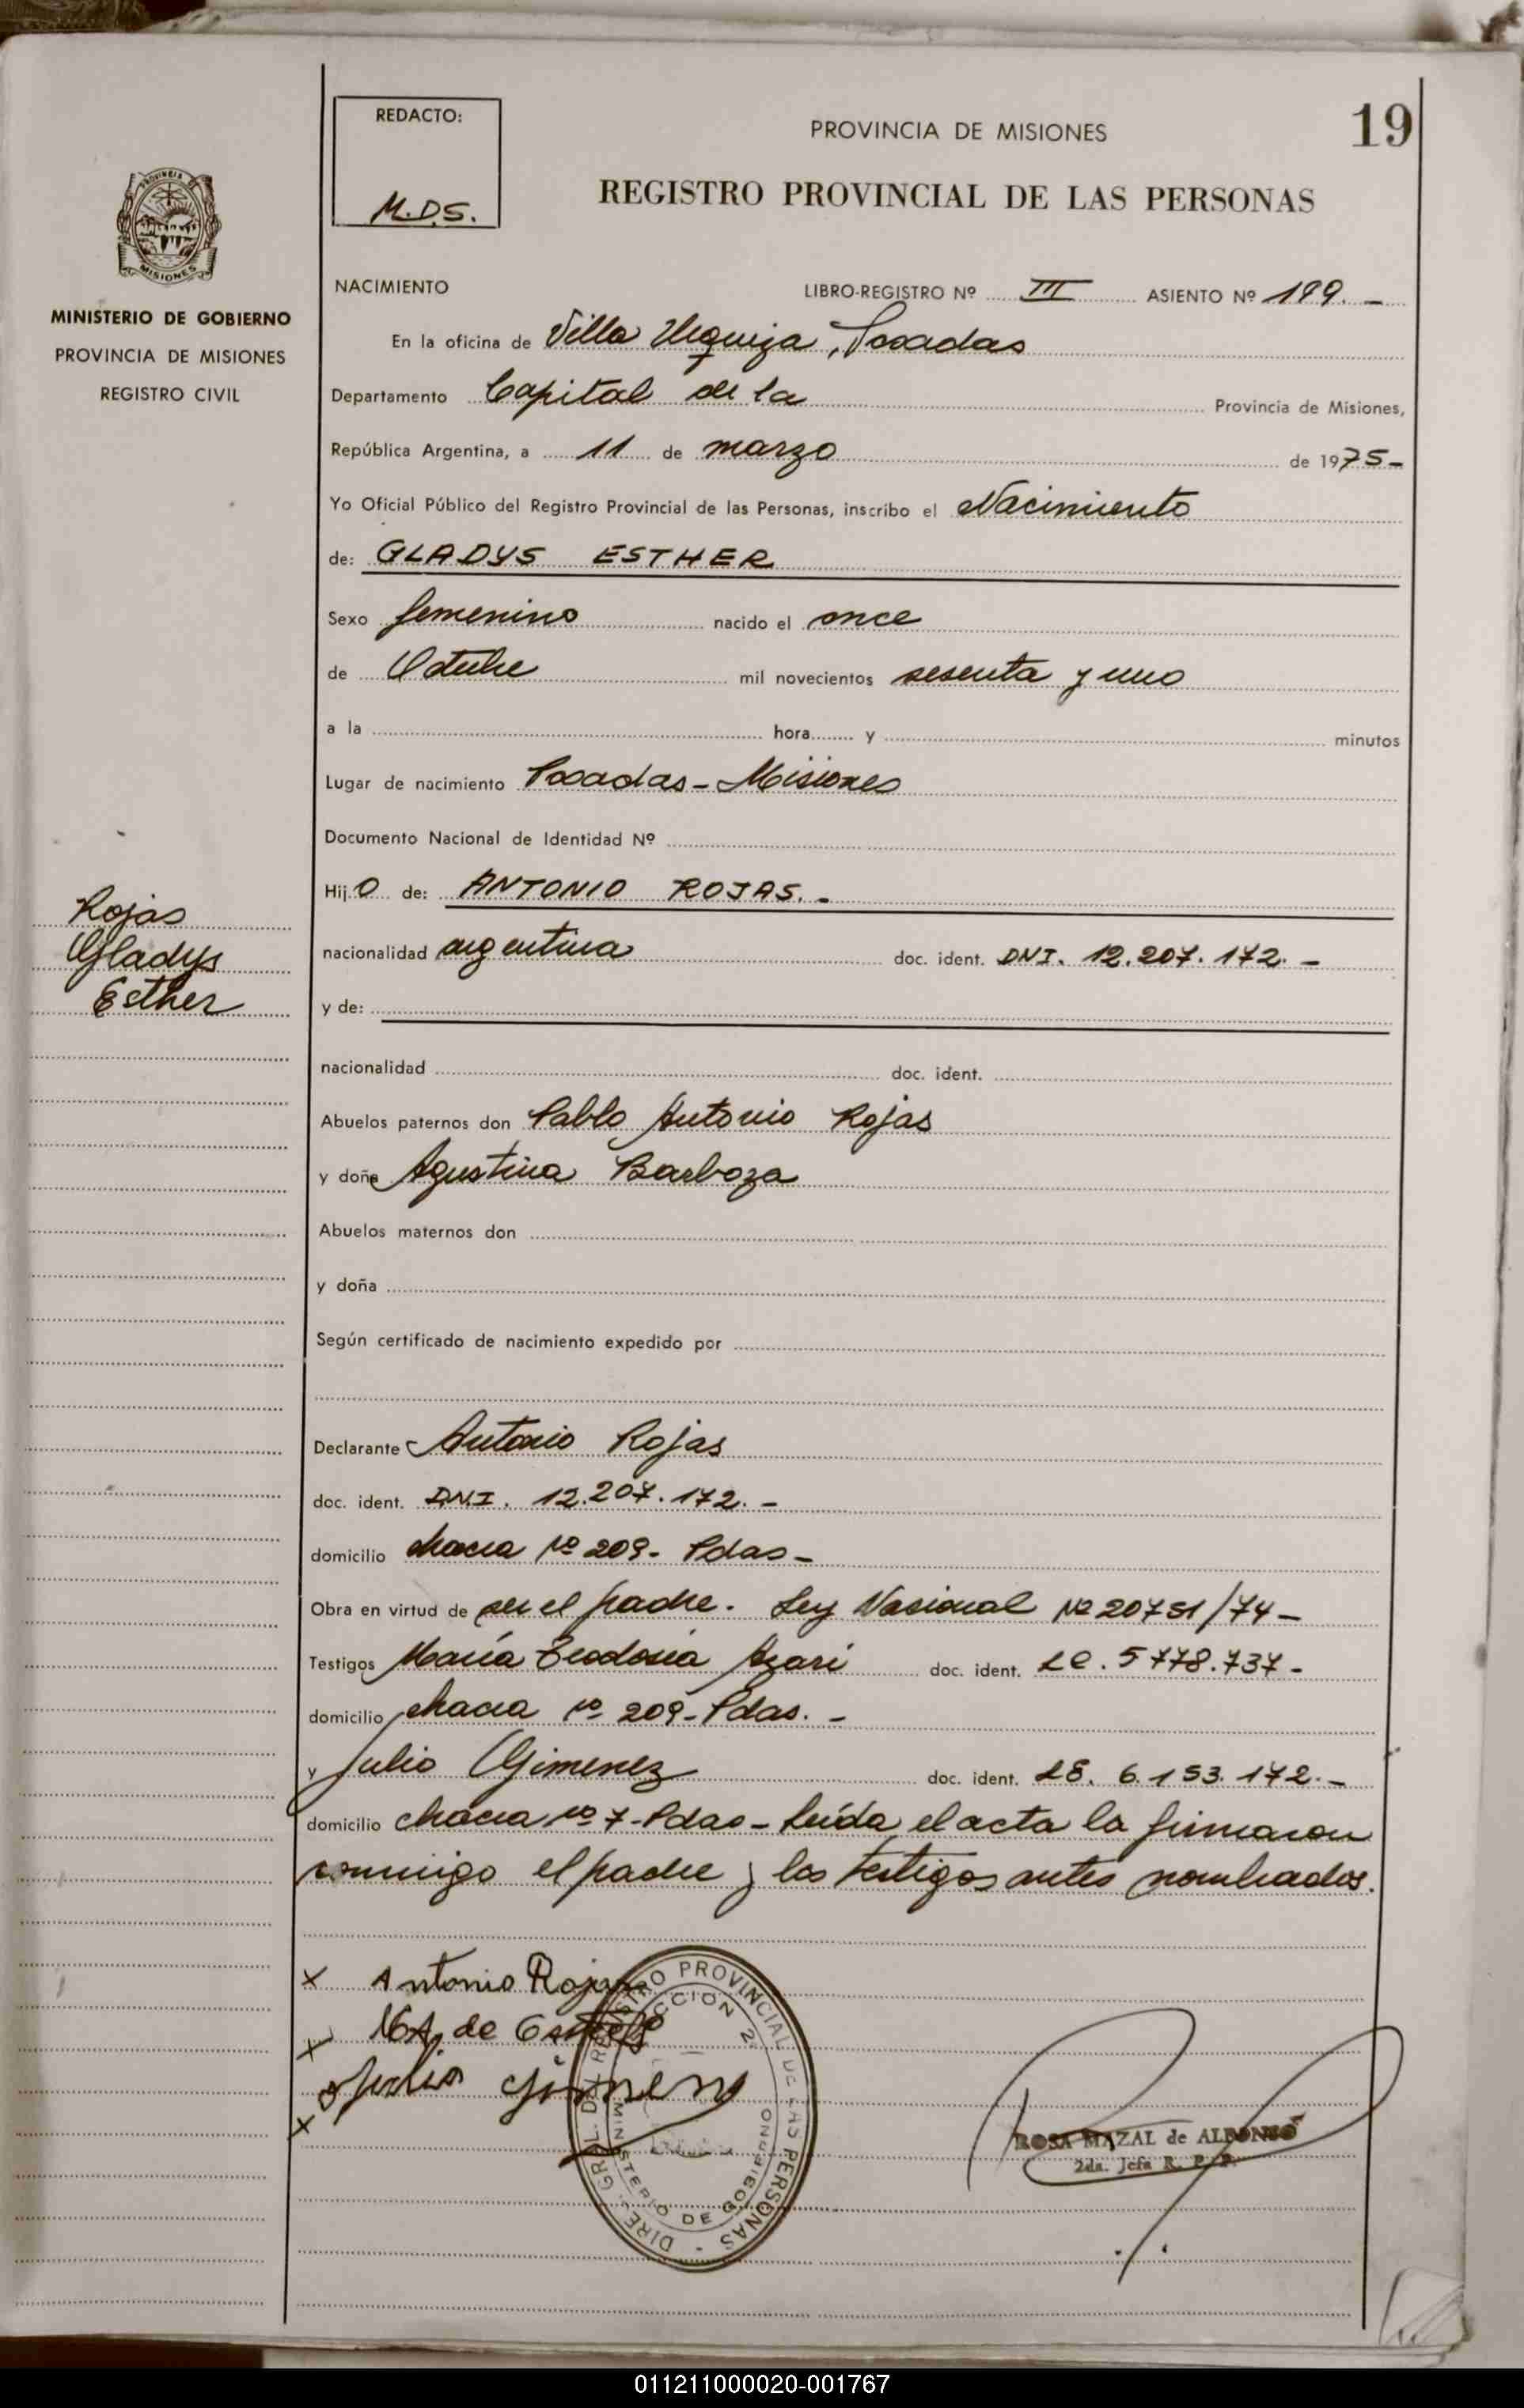 REDACTO:
M.D.S.
PROVINCIA DE MISIONES
19
REGISTRO PROVINCIAL DE LAS PERSONAS
PROVINCIA DE
MISIONES
MINISTERIO DE GOBIERNO
PROVINCIA DE MISIONES
REGISTRO CIVIL
NACIMIENTO LIBRO-REGISTRO Nº III ASIENTO Nº 199.-
En la oficina de Villa Urquiza, Posadas
Departamento Capital de la Provincia de Misiones,
República Argentina, a 11 de marzo de 1975-
Yo Oficial Público del Registro Provincial de las Personas, inscribo el Nacimiento
de: GLADYS ESTHER
Sexo femenino nacido el once
de Octubre mil novecientos sesenta y uno
a la hora y minutos
Lugar de nacimiento Posadas-Misiones
Documento Nacional de Identidad Nº
Hij O de: ANTONIO ROJAS.-
Rojas
Gladys
Esther
nacionalidad argentina doc. ident. DNI. 12.207.172.-
y de:
nacionalidad doc. ident.
Abuelos paternos don Pablo Antonio Rojas
y doña Agustina Barboza
Abuelos maternos don
y doña
Según certificado de nacimiento expedido por
Declarante Antonio Rojas
doc. ident. D.N.I. 12.207.172.-
domicilio chacra Nº 209- Pdas-
Obra en virtud de ser el padre. Ley Nacional Nº 20751/74-
Testigos María Teodosia doc. ident. LC. 5778.737-
domicilio chacra Nº 209-Pdas.-
y Julio Gimenez doc. ident. LE. 6.153.172.-
domicilio chacra Nº 7-Pdas- Leída el acta la firmaron
conmigo el padre y los testigos antes nombrados.
x Antonio Rojas
x de
x Julio Gimenez
DIRE. GRAL. DEL REGISTRO PROVINCIAL DE LAS PERSONAS -
SECCION 2ª
MINISTERIO DE GOBIERNO
ROSA MAZAL de ALFONSO
2da. Jefa R. P. P.
011211000020-001767